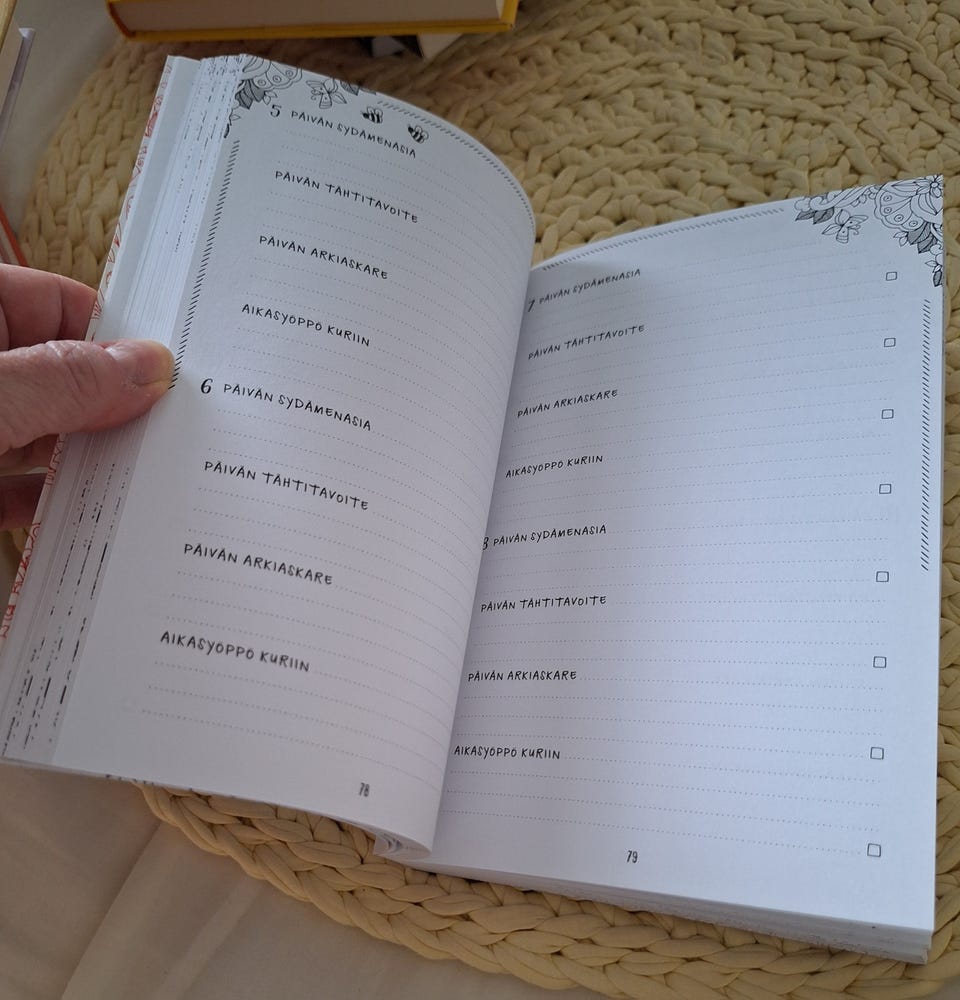 5 PÄIVÄN SYDÄMENASIA
PÄIVÄN TÄHTITAVOITE
PÄIVÄN ARKIASKARE
AIKASYÖPPÖ KURIIN
6 PÄIVÄN SYDÄMENASIA
PÄIVÄN TÄHTITAVOITE
PÄIVÄN ARKIASKARE
AIKASYÖPPÖ KURIIN
78
7 PÄIVÄN SYDÄMENASIA
PÄIVÄN TÄHTITAVOITE
PÄIVÄN ARKIASKARE
AIKASYÖPPÖ KURIIN
8 PÄIVÄN SYDÄMENASIA
PÄIVÄN TÄHTITAVOITE
PÄIVÄN ARKIASKARE
AIKASYÖPPÖ KURIIN
79